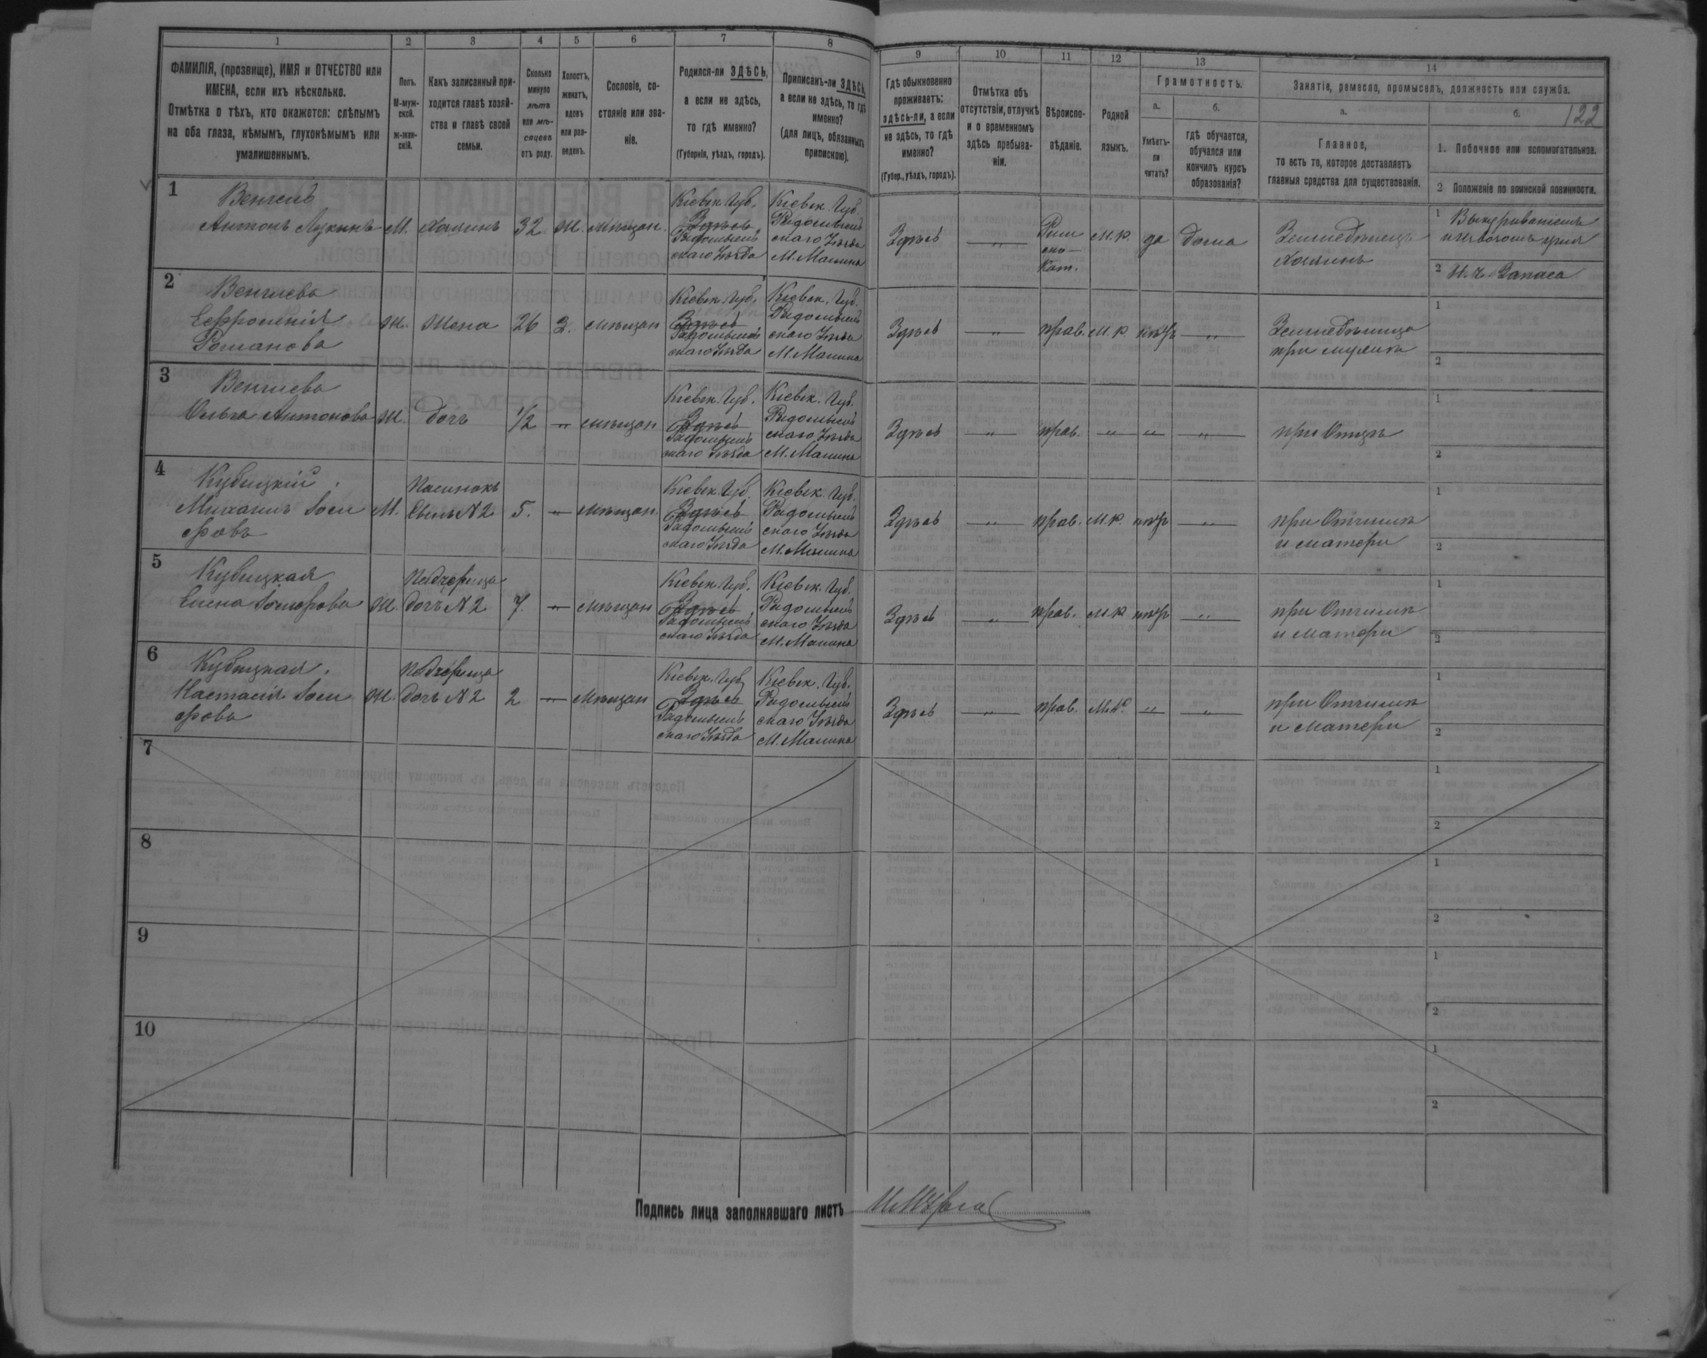 1 2 3 4 5 6 7 8 9 10 11 12 13 14
ФАМИЛІЯ, (прозвище), ИМЯ и ОТЧЕСТВО или
ИМЕНА, если ихъ нѣсколько.
Отмѣтка о тѣхъ, кто окажется: слѣпымъ
на оба глаза, нѣмымъ, глухонѣмымъ или
умалишеннымъ.
Полъ.
М-муж-
ской.
Ж-жен-
скій.
Какъ записанный при-
ходится главѣ хозяй-
ства и главѣ своей
семьи.
Сколько
минуло
лѣтъ
или мѣ-
сяцевъ
отъ роду.
Холостъ,
женатъ,
вдовъ
или раз-
веденъ.
Сословіе, со-
стояніе или зва-
ніе.
Родился-ли ЗДѢСЬ,
а если не здѣсь,
то гдѣ именно?
(Губернія, уѣздъ, городъ).
Приписанъ-ли ЗДѢСЬ,
а если не здѣсь, то гдѣ
именно?
(для лицъ, обязанныхъ
припискою).
Гдѣ обыкновенно
проживаетъ:
здѣсь-ли, а если
не здѣсь, то гдѣ
именно?
(Губер., уѣздъ, городъ).
Отмѣтка объ
отсутствіи, отлучкѣ
и о временномъ
здѣсь пребыва-
ніи.
Вѣроиспо-
вѣданіе.
Родной
языкъ.
Грамотность.
а.
Умѣетъ-
ли
читать?
б.
гдѣ обучается,
обучался или
кончилъ курсъ
образованія?
Занятіе, ремесло, промыселъ, должность или служба.
а.
Главное,
то есть то, которое доставляетъ
главныя средства для существованія.
б. 122
1. Побочное или вспомогательное.
2 Положеніе по воинской повинности.
1
Антонъ М. Хозяинъ 32 Ж. мѣщан.
Кіевск. Губ.
Здѣсь
Радомысль
скаго Уѣзда
Кіевск. Губ
Радомысль
скаго Уѣзда
М. Малина
Здѣсь — „ —
Рим
ско—
Кат.
М.Р. да дома
Земледѣлецъ
Хозяинъ
1
2 Запаса
2
Романова
Ж. Жена 26 З. мѣщан
Кіевск. Губ.
Здѣсь
Радомысль
скаго Уѣзда
Кіевск. Губ.
Радомысль
скаго Уѣзда
М. Малина
Здѣсь — „ — прав. М.Р — „ —
при мужѣ
1
2
3
Ольга Антонова Ж. дочь 1/2 — „ — мѣщан
Кіевск. Губ.
Здѣсь
Радомысль
скаго Уѣзда
Кіевск. Губ.
Радомысль
скаго Уѣзда
М. Малина
Здѣсь — „ — прав. — „ — — „ — — „ —
при Отцѣ
1
2
4
Кубицкій
Михаилъ М.
Пасынокъ
сынъ №2
5. — „ — мѣщан
Кіевск. Губ.
Здѣсь
Радомысль
скаго Уѣзда
Кіевск. Губ.
Радомысль
скаго Уѣзда
М. Малина
Здѣсь — „ — прав. М.Р — „ —
при Отчимѣ
и матери
1
2
5
Кубицкая
Елена Ж.
Падчерица
дочь №2
7. — „ — мѣщан
Кіевск. Губ.
Здѣсь
Радомысль
скаго Уѣзда
Кіевск. Губ.
Радомысль
скаго Уѣзда
М. Малина
Здѣсь — „ — прав. М.Р — „ —
при Отчимѣ
и матери
1
2
6
Кубицкая
Настасія Ж.
Падчерица
дочь №2
2 — „ — мѣщан
Кіевск. Губ.
Здѣсь
Радомысль
скаго Уѣзда
Кіевск. Губ.
Радомысль
скаго Уѣзда
М. Малина
Здѣсь — „ — прав. М.Р. — „ — — „ —
при Отчимѣ
и матери
1
2
7
1
2
8
1
2
9
1
2
10
1
2
Подпись лица заполнявшаго листъ